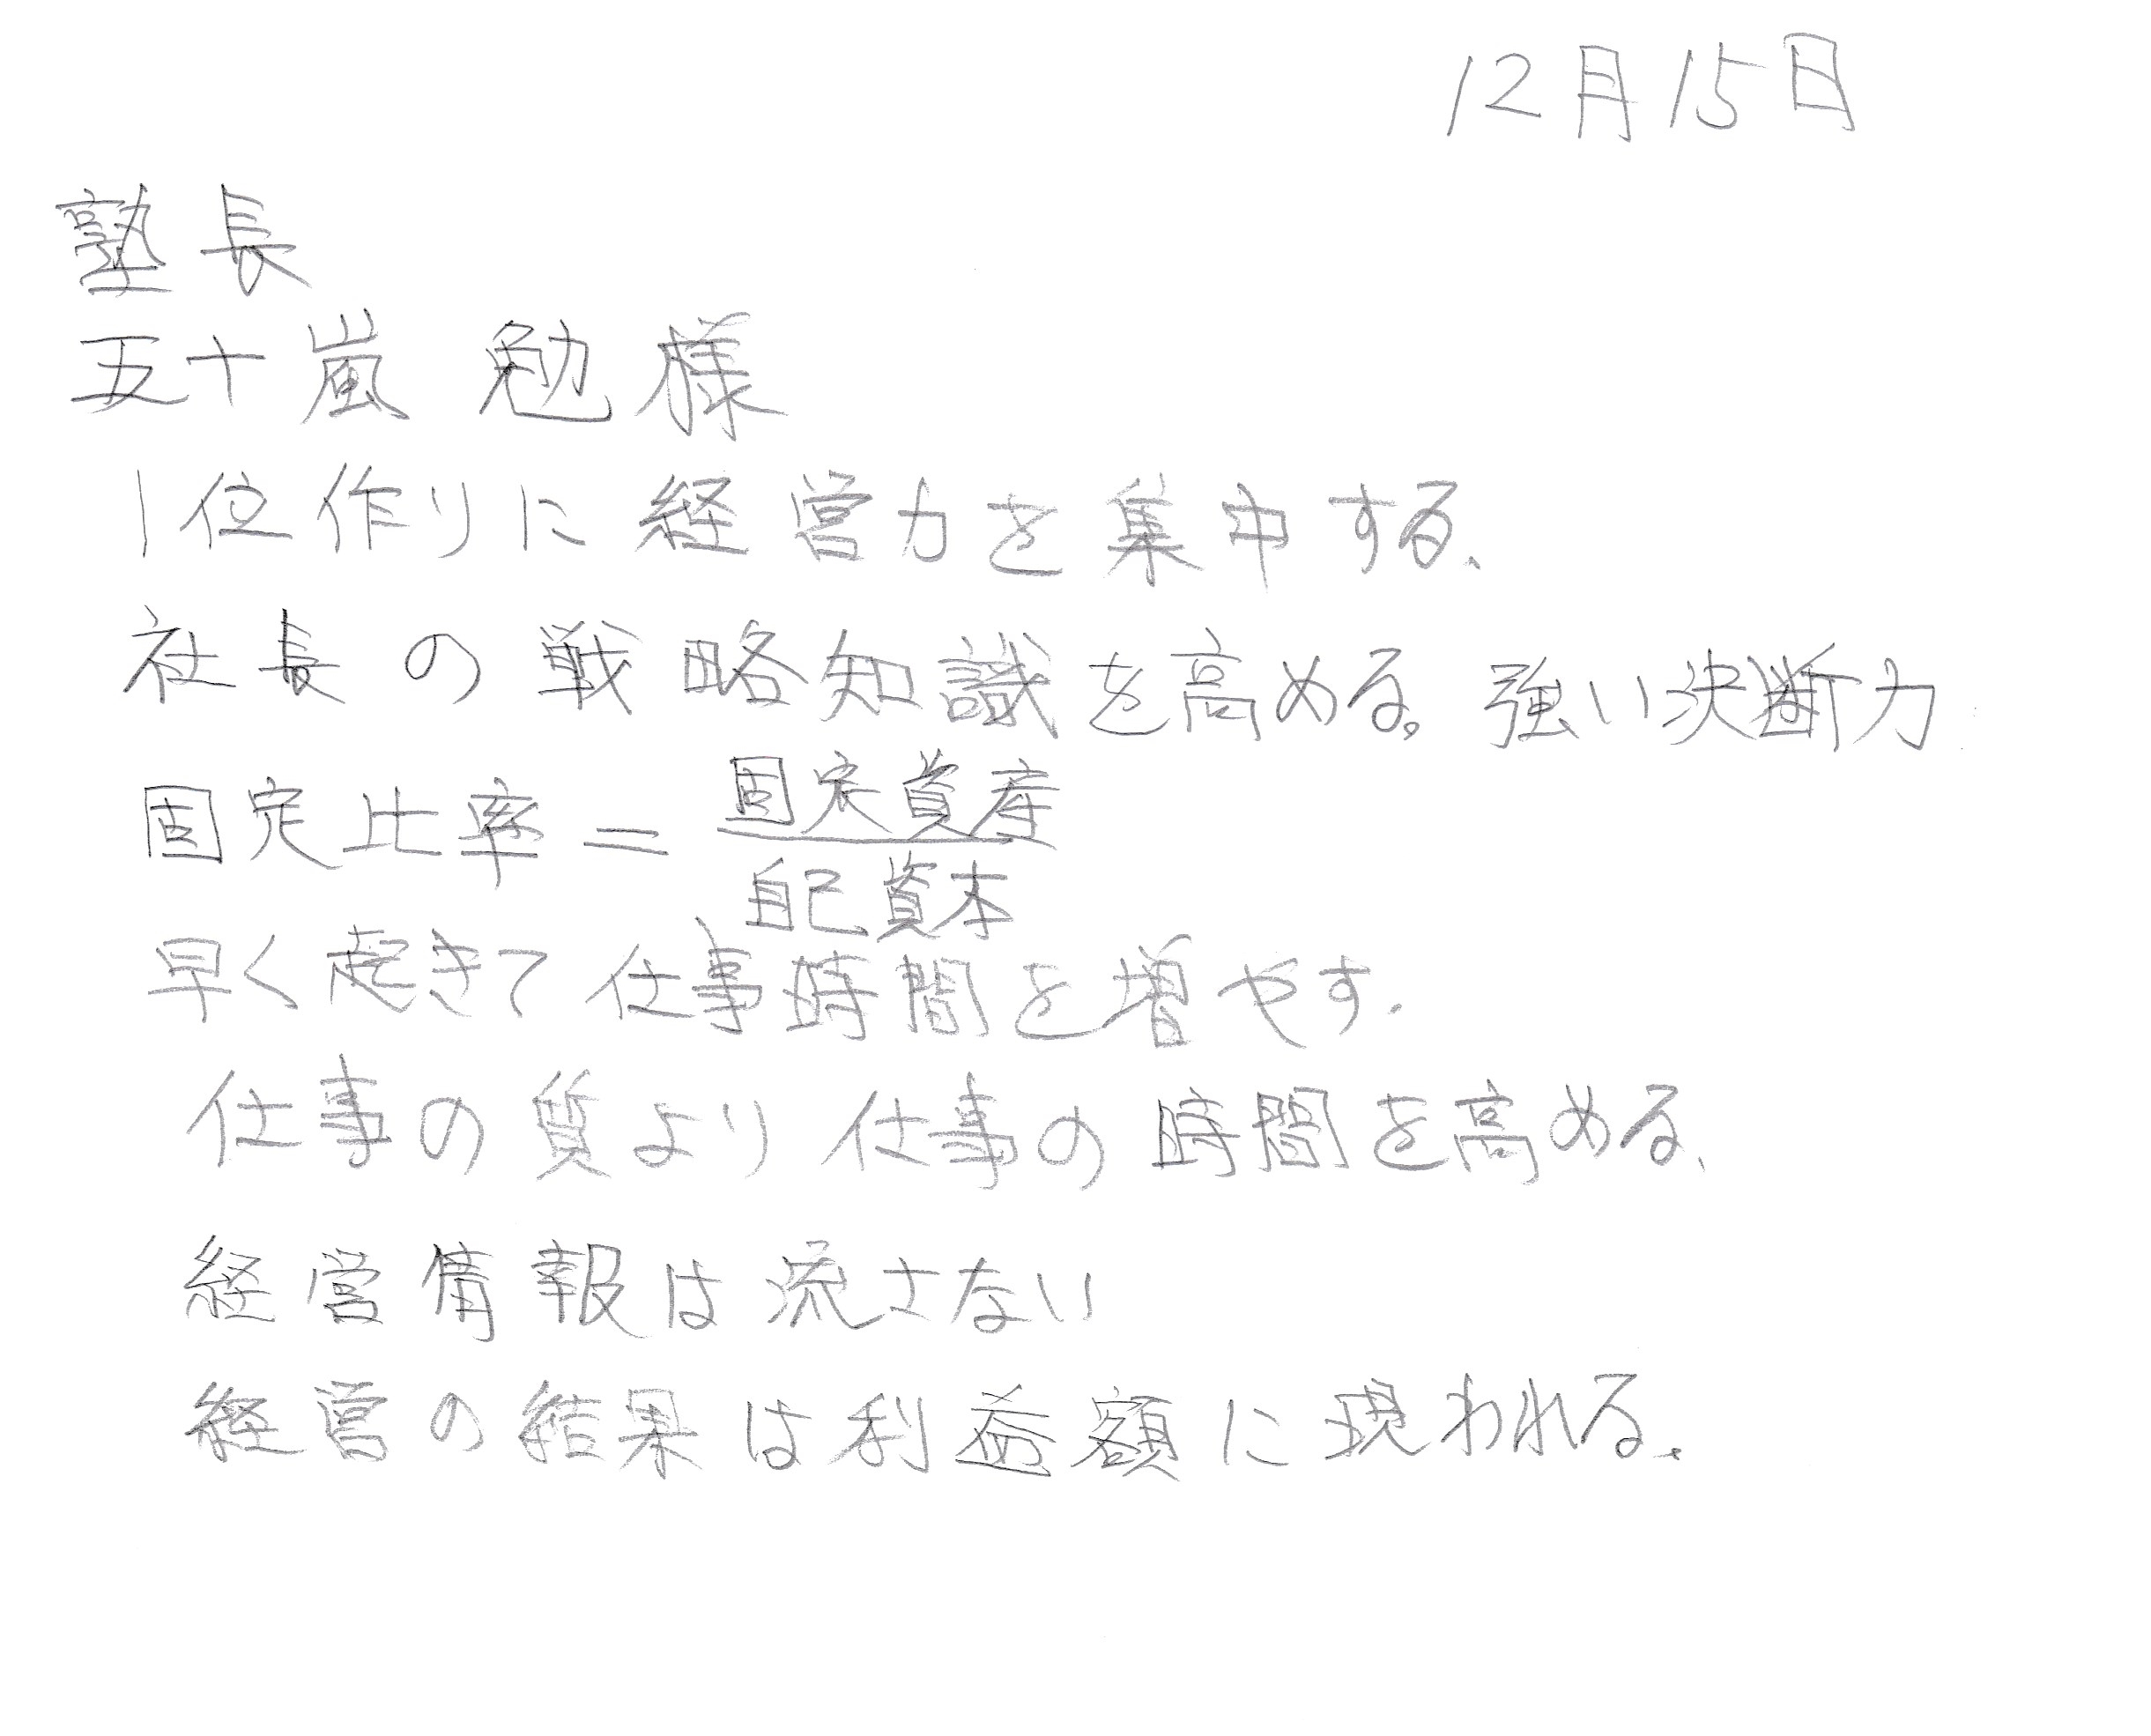 12月15日
塾長
五十嵐 勉様
1位作りに経営力を集中する、
社長の戦略知識を高める。強い決断力
固定比率=固定資産
自己資本
早く起きて仕事時間を増やす.
仕事の質より仕事の時間を高める、
経営情報は流さない
経営の結果は利益額に現われる.